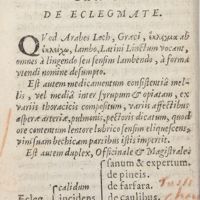 DE ECLEGMATE.
QVod Arabes Loch, Græci, ἔκλειγμα ab
ἐκλείχω, lambo, Latini Linctum vocant,
omnes à lingendo seu sensim lambendo, à forma
utendi nomine desumpto.
Est autem medicamentum consistentiæ mel-
lis, vel mediæ inter syrupum & opiatam, ex
variis thoracicis compositum, variis affectibus
asperæ arteriæ, pulmonis, pectoris dicatum, quod
ore contentum lentore lubrico sensim eliquescens,
vim suam bechicam partibus istis impertit.
Est autem duplex, Officinale & Magistrale
sanum & expertum.
de pineis.
calidum
de farfara.
Ecleg
incidens
de caulibus.